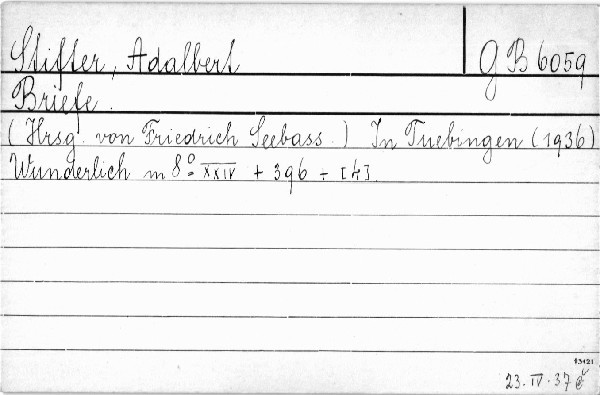 Stifter, Adalbert
G B 6059
Briefe.
(Hrsg. von Friedrich Seebass.) In Tuebingen (1936)
Wunderlich in 8° XXIV + 396 ÷ [4].
13121
23. IV. 37